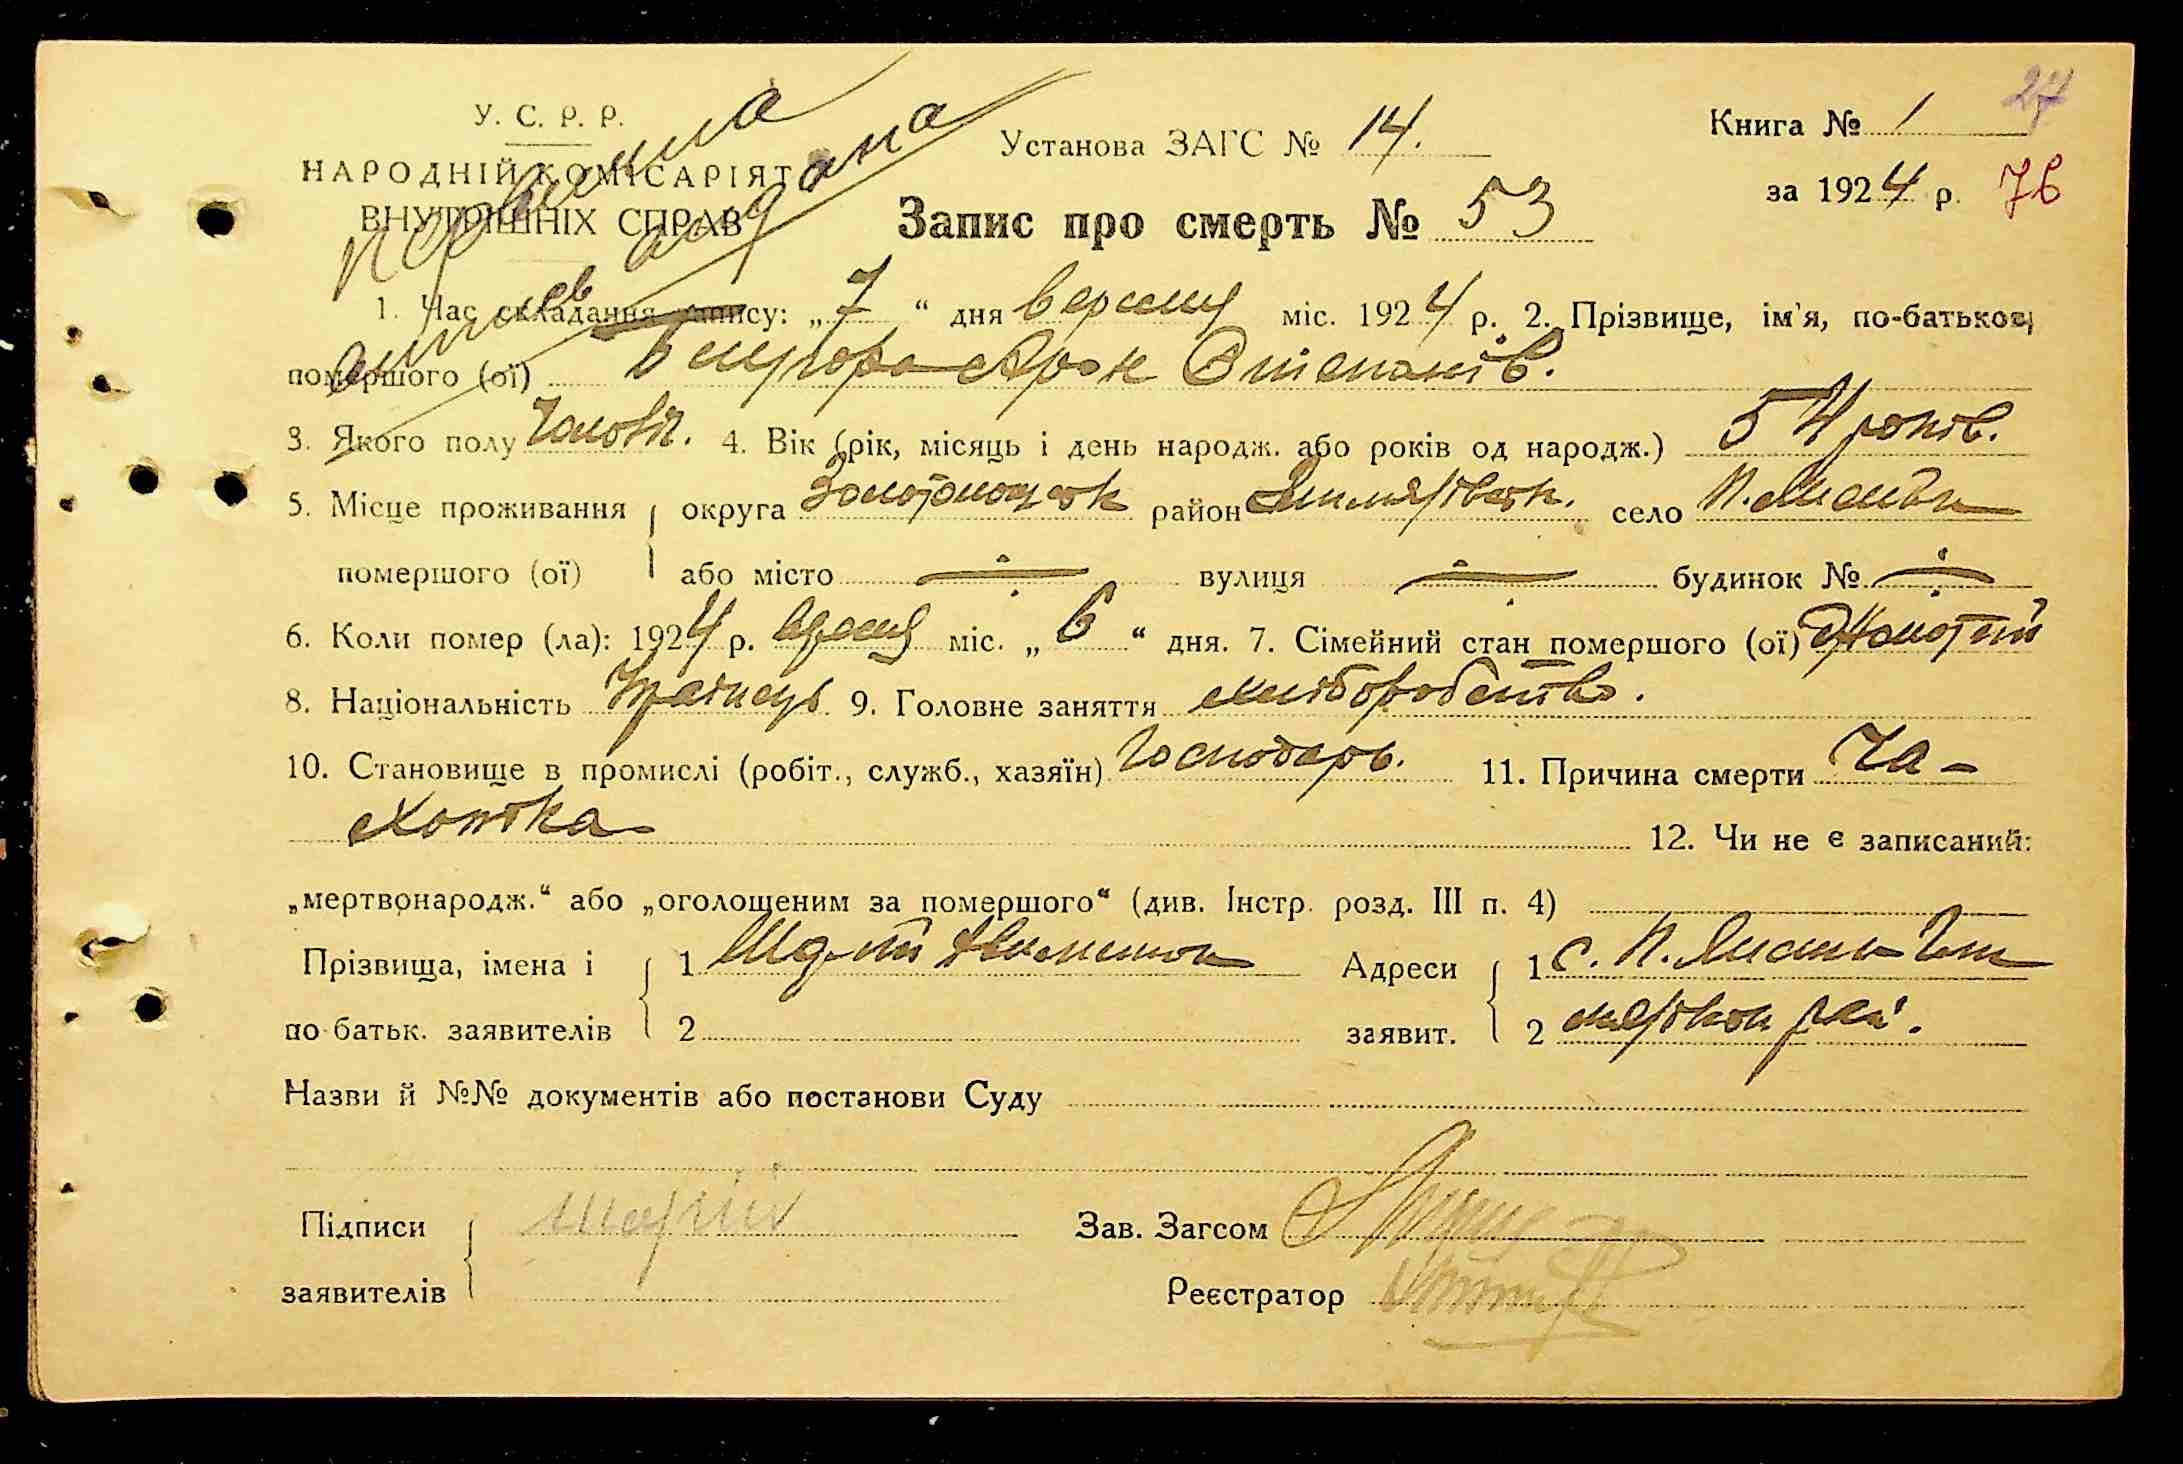 27
У. С. Р. Р.
Установа ЗАГС № 14.
Книга № 1
НАРОДНІЙ КОМІСАРІЯТ
за 1924 р. 76
ВНУТРІШНІХ СПРАВ
Запис про смерть № 53
видана
1. Час складання запису: „7“ дня вересня міс. 1924 р. 2. Прізвище, ім'я, по-батькові
помершого (ої) Степанів.
3. Якого полу Чоловіч. 4. Вік (рік, місяць і день народж. або років од народж.) 54 років.
5. Місце проживання округа Золотоношськ район село
помершого (ої) або місто вулиця будинок №
6. Коли помер (ла): 1924 р. вересня міс. „6“ дня. 7. Сімейний стан помершого (ої) Жонатий
8. Національність Українець 9. Головне заняття хліборобство.
10. Становище в промислі (робіт., служб., хазяїн) Господарь. 11. Причина смерти Ча-
хотка
12. Чи не є записаний:
„мертвонародж.“ або „оголошеним за помершого“ (див. Інстр. розд. III п. 4)
Прізвища, імена і 1 Адреси 1 с.
по-батьк. заявителів 2 заявит. 2 рай.
Назви й №№ документів або постанови Суду
Підписи Зав. Загсом
заявителів Реєстратор